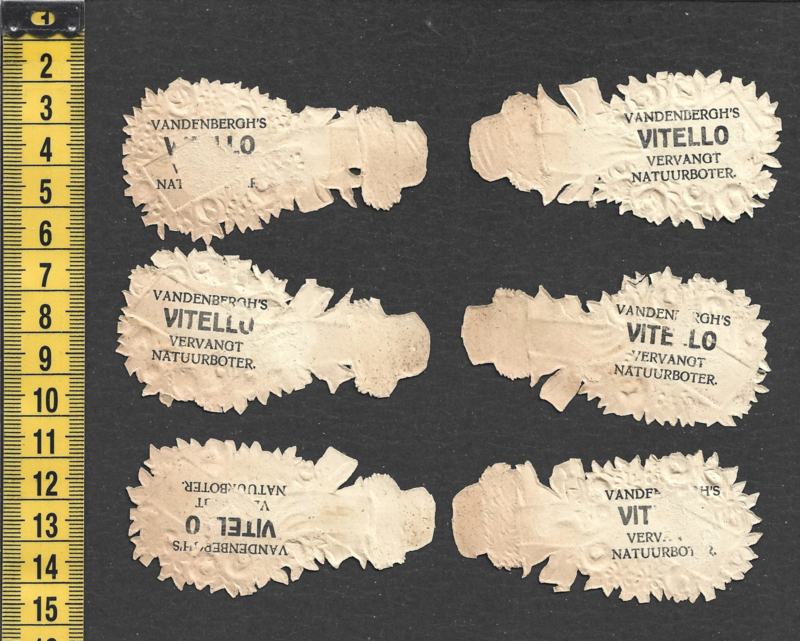 1
2
3
4
5
6
7
8
9
10
11
12
13
14
15
VANDENBERGH'S
VANDENBERGH'S
VITELLO
VERVANGT
NATUURBOTER.
VANDENBERGH'S
VITELLO
VERVANGT
NATUURBOTER.
VANDEN RGH'S
VITE LO
VERVANGT
NATUURBOTER.
VANDENBERGH'S
VITEL O
NATUURBOTER.
VANDE GH'S
VIT
VERV
NATUURBOT R.